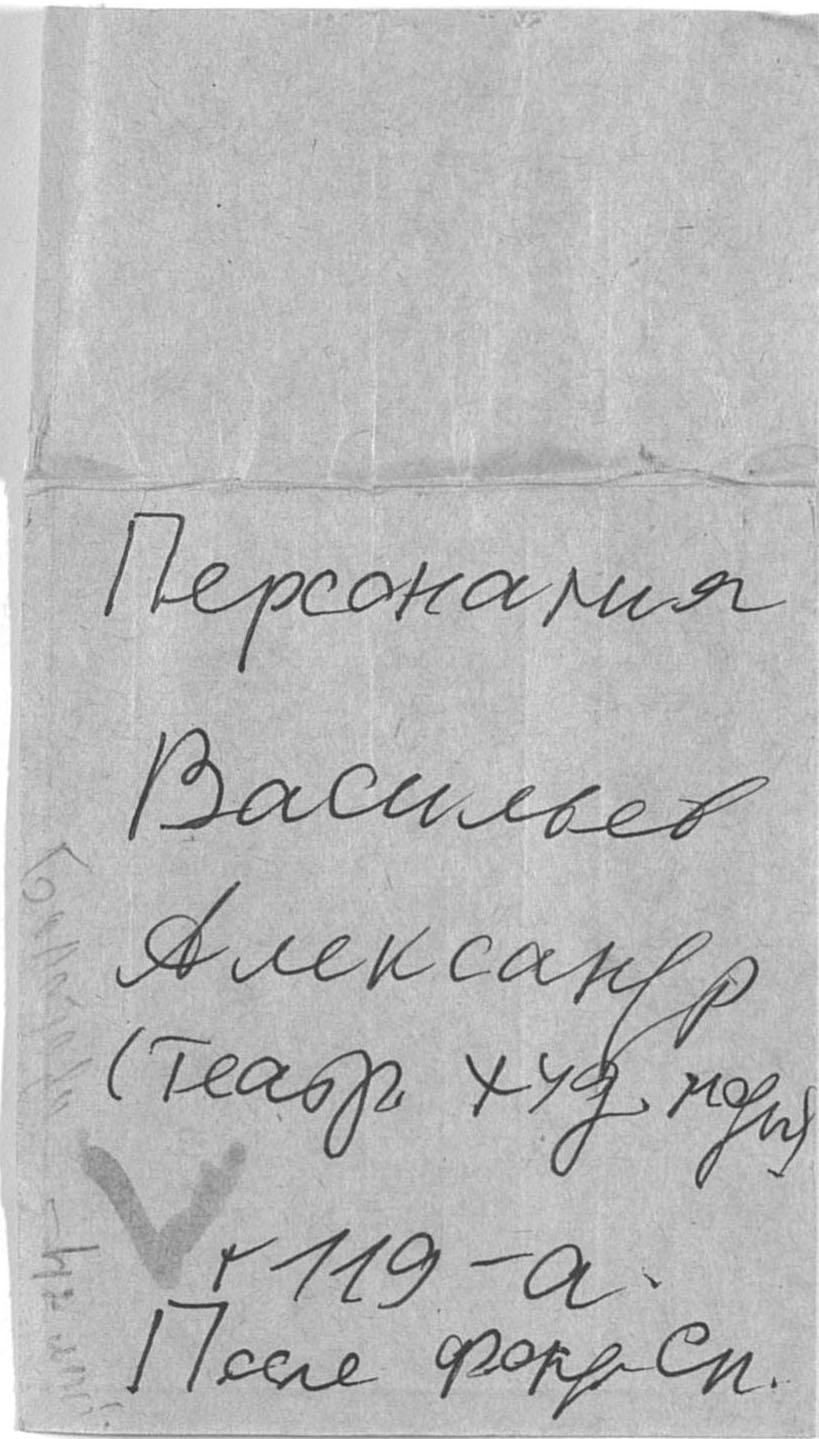 Персоналия
Васильев
Александр
(Театр. худ.
+ 119-а.
После